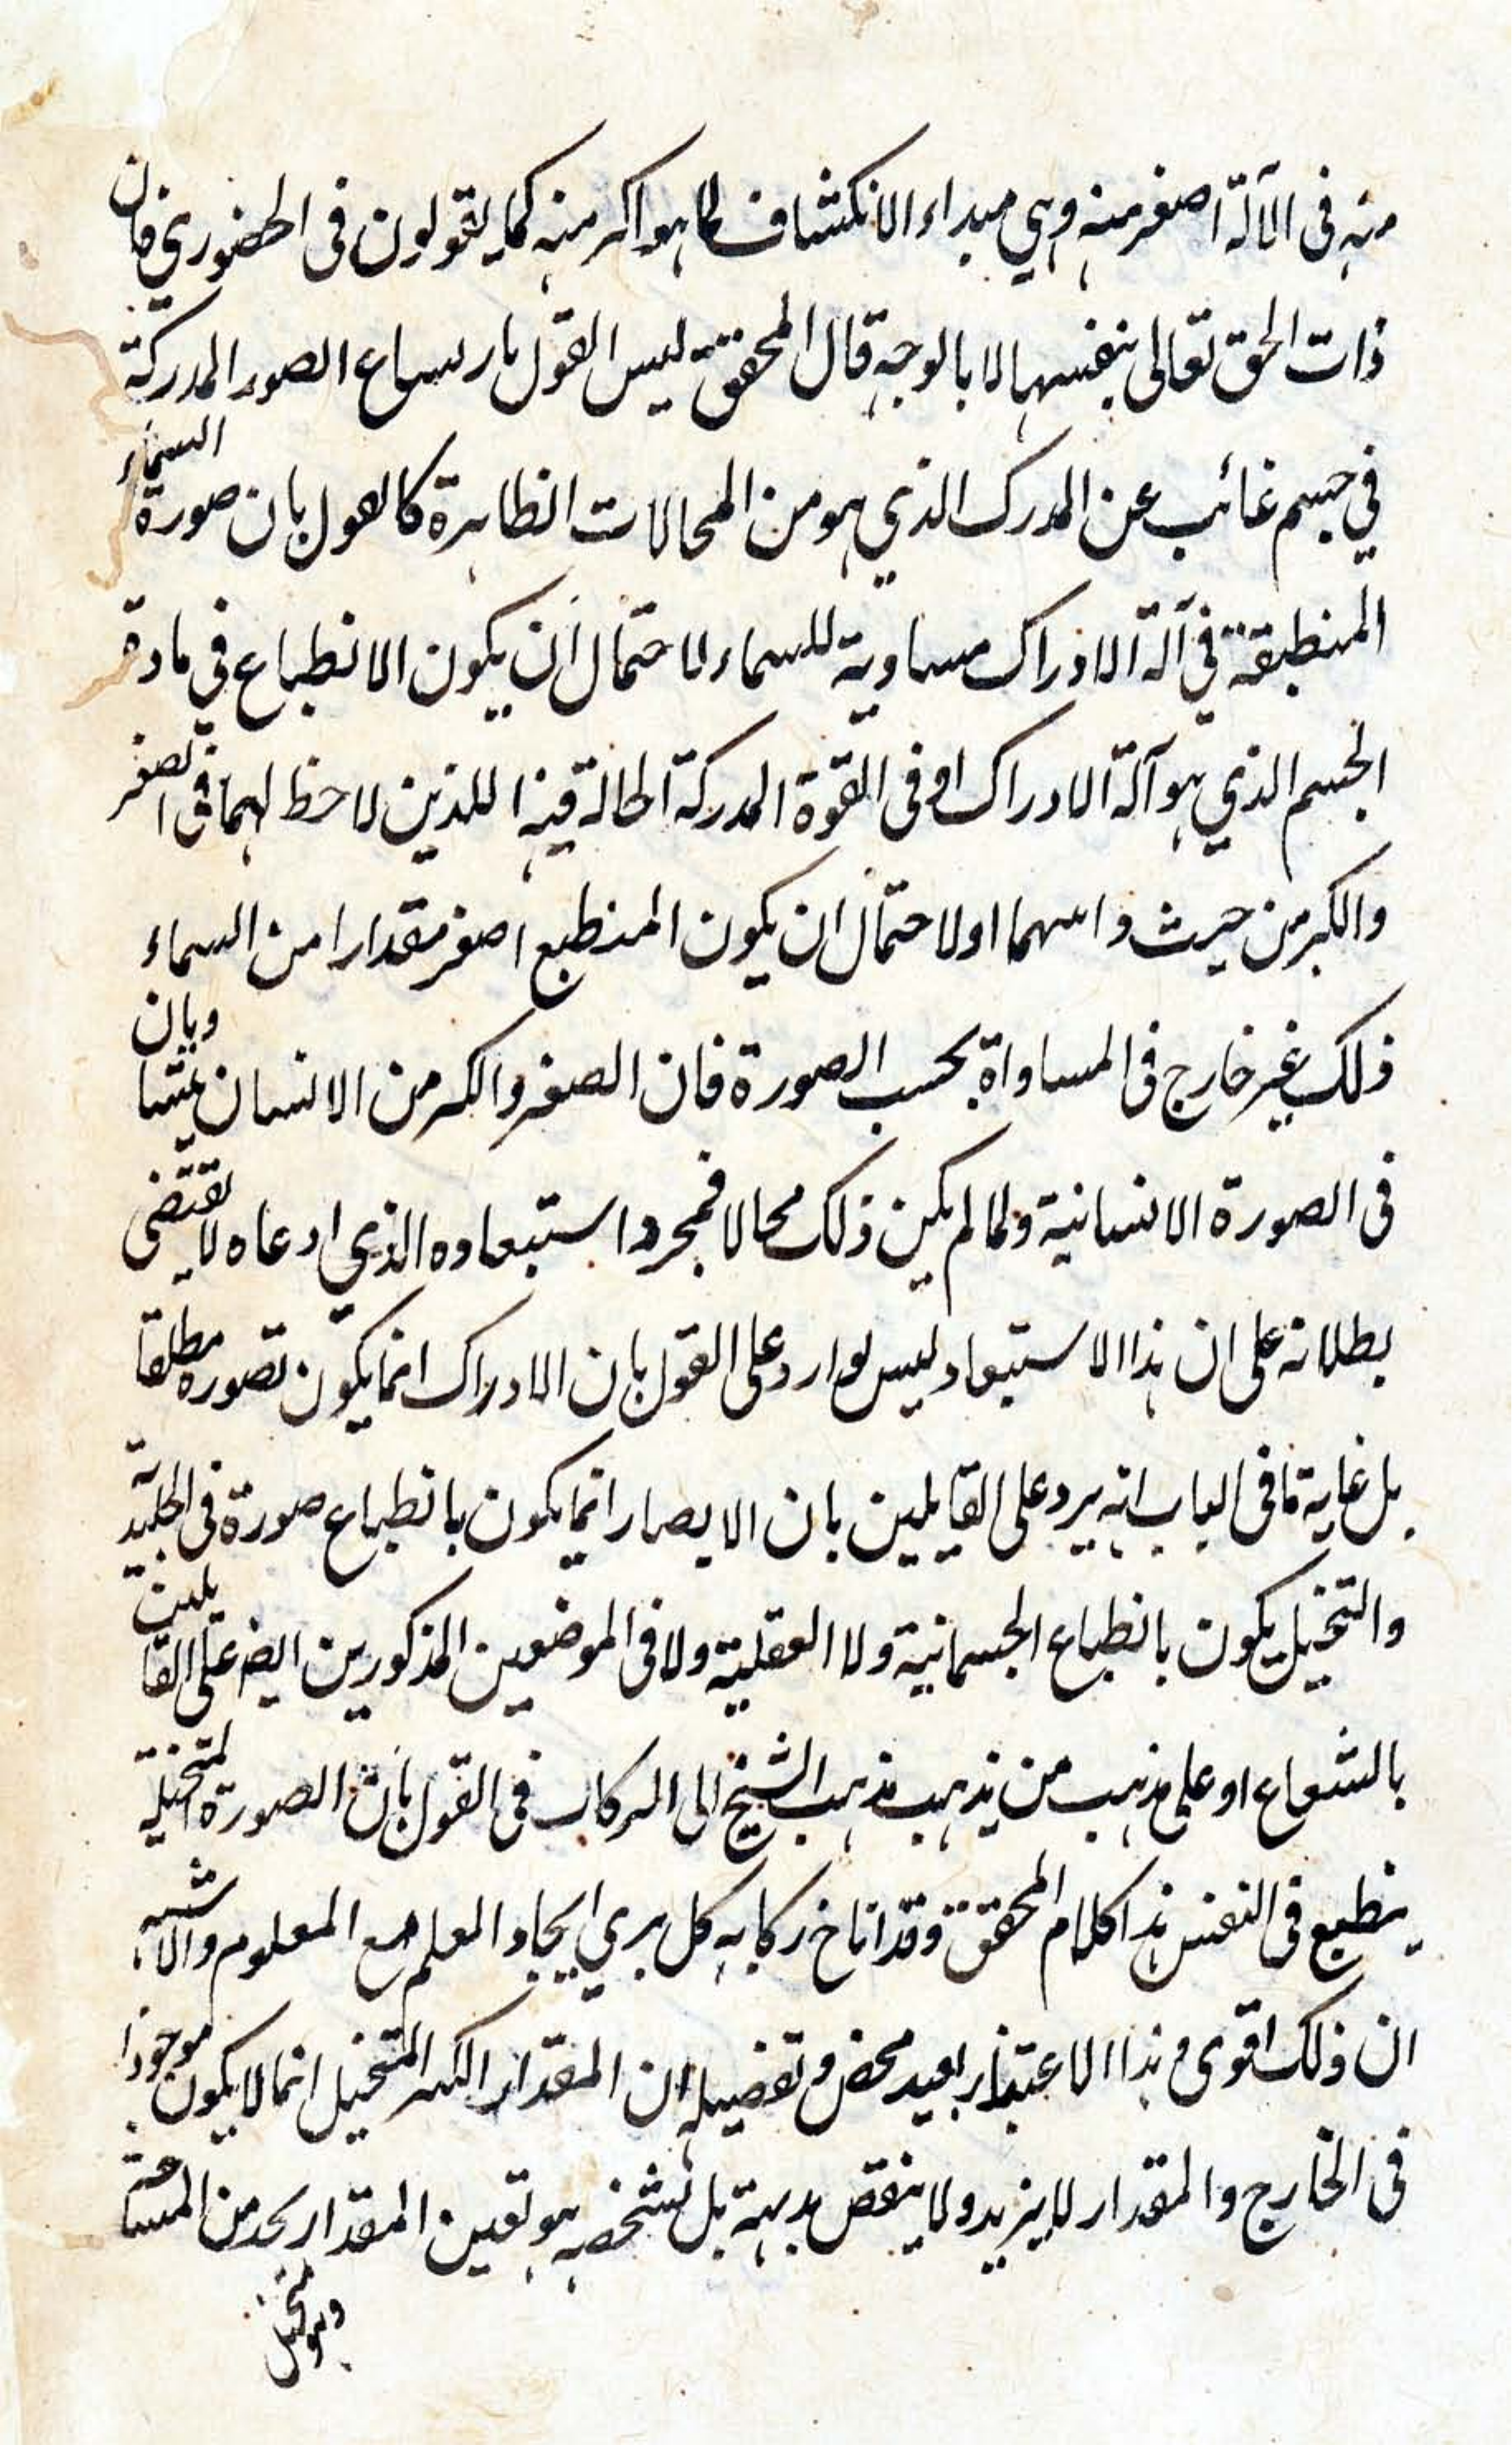 منه فى الآلة اصغر منه وهي مبداء الانكشاف لما هو اكبر منه كما يقولون فى الحضوري فان
ذات الحق تعالى بنفسها لا بالوجه قال المحقق ليس القول بارتسام الصور المدركة
في جسم غائب عن المدرك الذي هو من المحالات الظاهرة كالقول بان صورة السماء
المنطبقة في آلة الادراك مساوية للسماء لاحتمال أن يكون الانطباع في مادة
الجسم الذي هو آلة الادراك او فى القوة المدركة الحالة فيه اللذين لا حظ لهما فى الصغر
والكبر من حيث ذاتهما او لاحتمال ان يكون المنطبع اصغر مقدارا من السماء
ذلك غير خارج فى المساواة بحسب الصورة فان الصغير والكبير من الانسان يتساويان
فى الصورة الانسانية ولما لم يكن ذلك محالا فمجرد استبعاده الذي ادعاه لا يقتضى
بطلانه على ان هذا الاستبعاد ليس بوارد على القول بان الادراك انما يكون بصورة مطلقا
بل غاية ما فى الباب انه يرد على القايلين بان الابصار انما يكون بانطباع صورة فى الجليدية
والتخيل يكون بانطباع الجسمانية ولا العقلية ولا فى الموضعين المذكورين ايضا على القايلين
بالشعاع او على مذهب من يذهب مذهب الشيخ ابى البركات فى القول بان الصورة المتخيلة
ينطبع فى النفس هذا كلام المحقق وقد اناخ ركابه كل يري ايجاد العلم مع المعلوم والاشبه
ان ذلك اقوى و هذا الاعتبار بعيد محض وتفصيله ان المقدار الكبير المتخيل انما لا يكون موجودا
فى الخارج والمقدار لا يزيد ولا ينقص بديهة بل تشخصه هو تعين المقدار بحد من المساحة
وهو تخيل